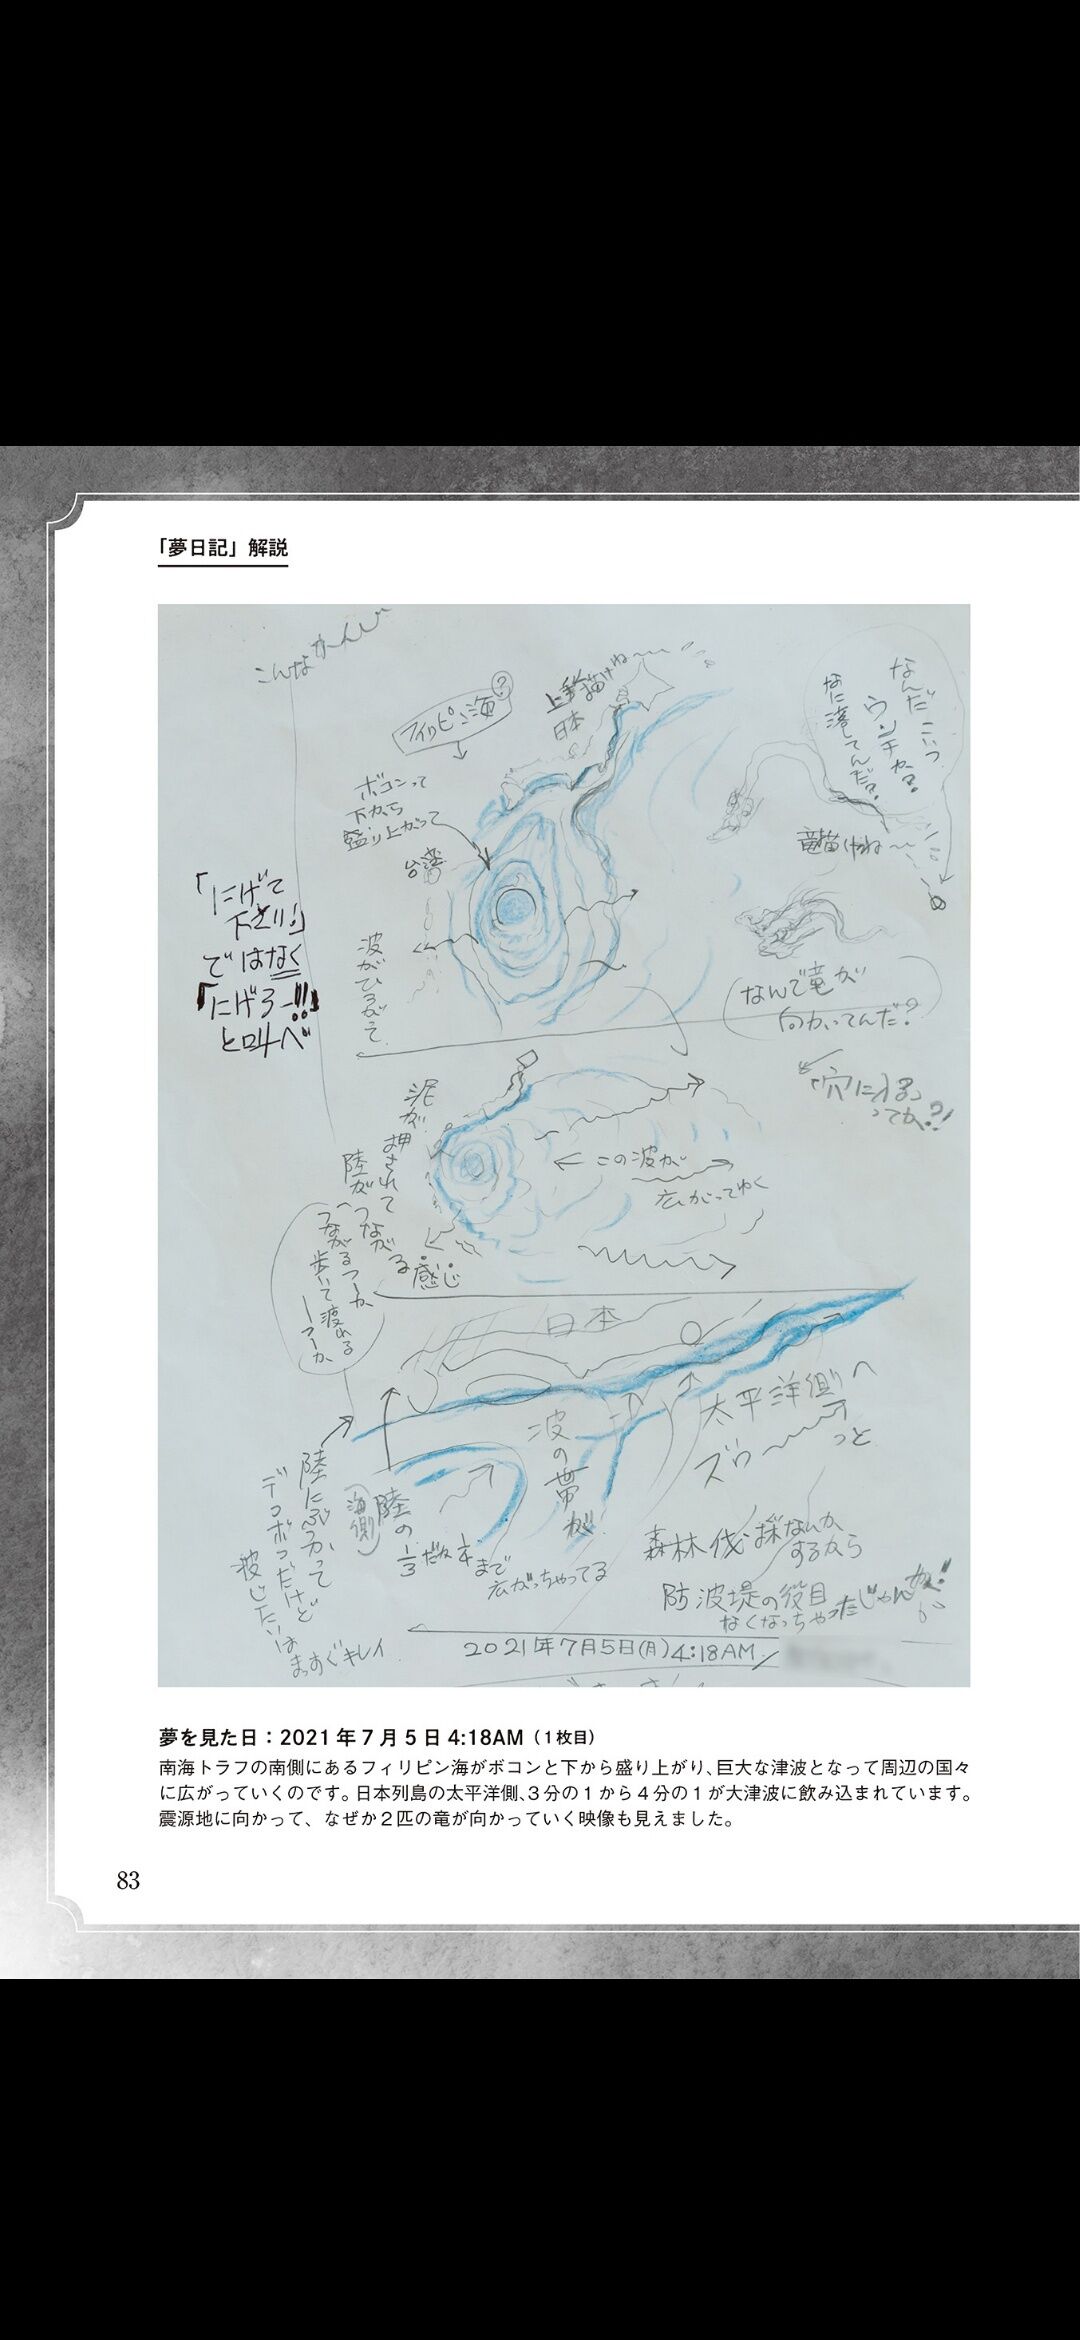 「夢日記」解説
こんなかんじ
フィリピン海?
上手く描けね〜
日本
ボコンって
下から
盛り上がって
台湾
波がひろがって
なんだこいつ
ウンチか?
なに落してんだ?
竜描けね〜
「にげて
下さい!」
ではなく
「にげろー!!」
と叫べ
なんで竜が
向かってんだ?
「穴に入る」
ってか?!
泥が押されて
陸がつながる感じ
つながるつーか
歩いて渡れる
ーつーか
この波が
広がってゆく
日本
太平洋側へ
ズウ〜っと
波の帯が
陸の
(海側)
1/3だね1/4まで
広がっちゃってる
陸にぶつかって
デコボコだけど
波じたいは
まっすぐキレイ
森林伐採なんか
するから
防波堤の役目
なくなっちゃったじゃんか!
2021年7月5日(月)4:18AM
夢を見た日:2021年7月5日4:18AM(1枚目)
南海トラフの南側にあるフィリピン海がボコンと下から盛り上がり、巨大な津波となって周辺の国々
に広がっていくのです。日本列島の太平洋側、3分の1から4分の1が大津波に飲み込まれています。
震源地に向かって、なぜか2匹の竜が向かっていく映像も見えました。
83